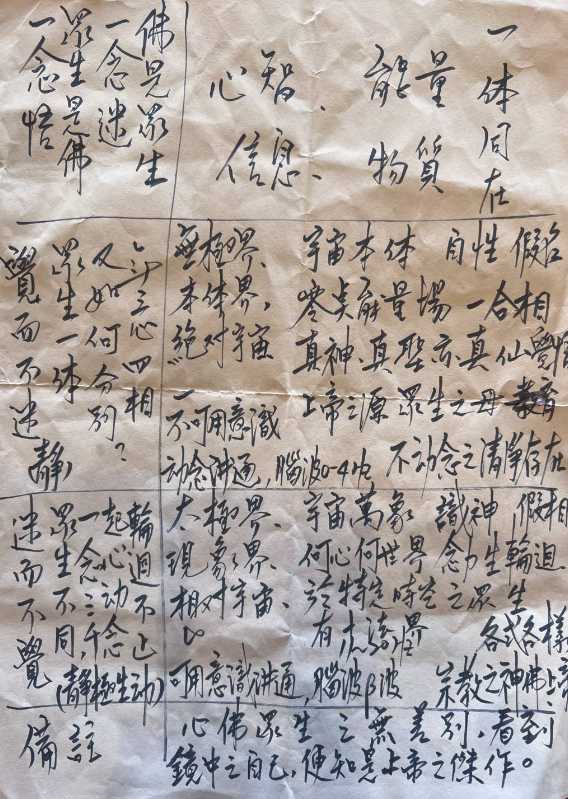 一体同在
心智、能量
信息、物質
佛是眾生
一念迷
眾生是佛
一念悟
宇宙本体 自性 假名
零点能量場 一合相
真神、真聖亦真仙 覺悟
上帝之源 眾生之母 教育
不动念之清淨存在
無極界、
本体界,
絕对宇宙
不可用意識
动念讲通,腦波0-4Hz
三心四相
又如何分別?
眾生一体
覺而不迷
(靜)
宇宙萬象 識神 假相
何心何世界 念力生輪迴
於特定時空之眾生
有 界 各式各樣
宗教之神佛上帝
太極界、
現象界、
相对宇宙、
可用意識讲通,腦波β波
輪迴不止
起心动念
一念三千
眾生不同
迷而不覺
(靜極生动)
備註
心佛眾生之無差別,看到
鏡中之自己,便知是上帝之傑作。